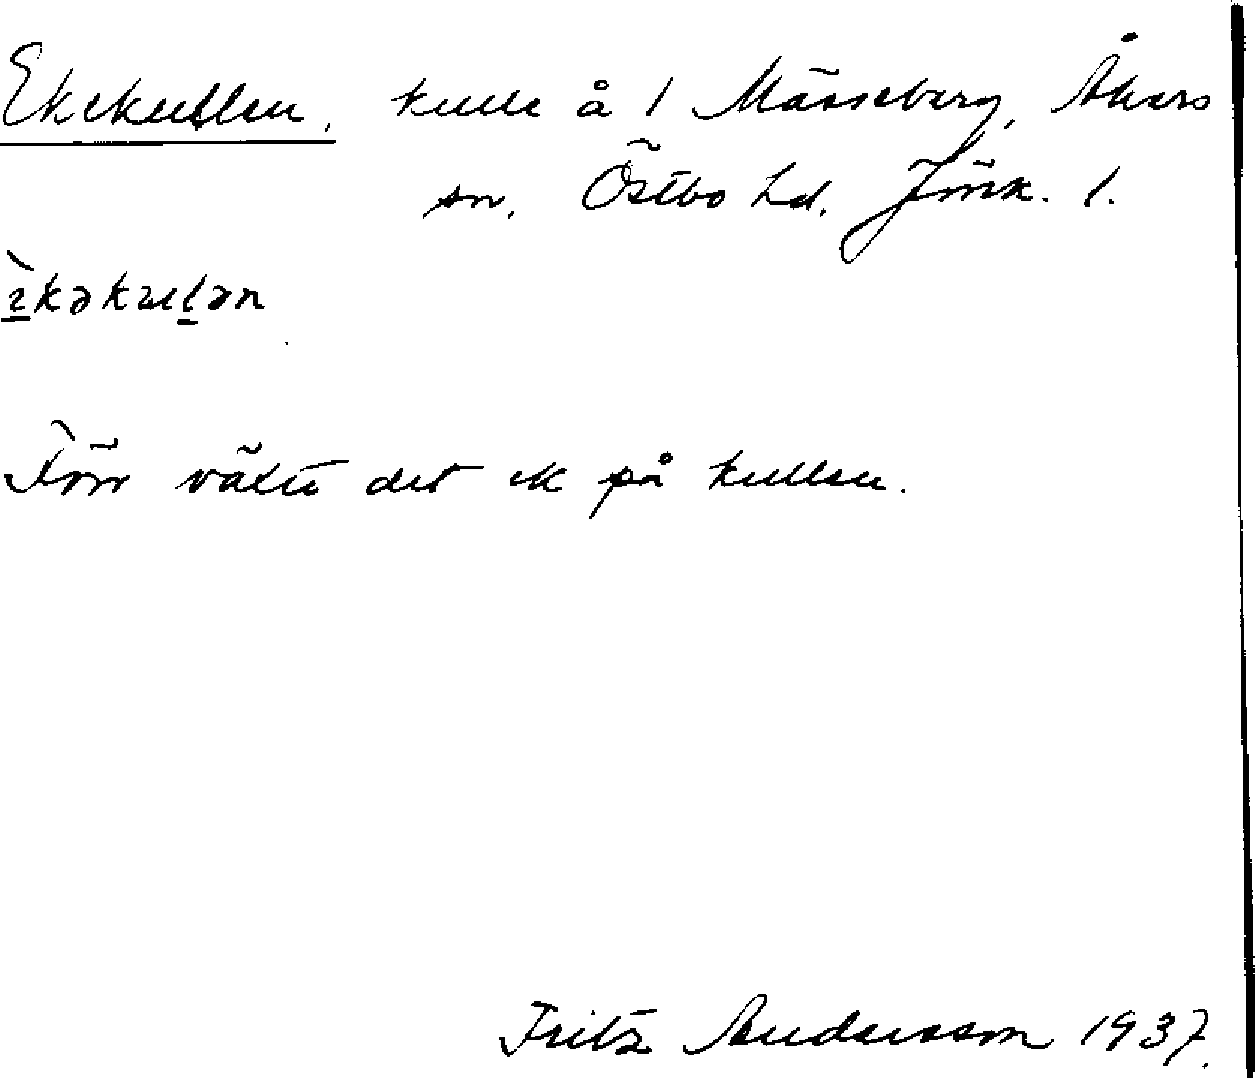 Ekekullen, kulle å 1 Mässeberg, Åkers
sn, Östbo hd, Jönk. l.
ìkəkuḷən
Förr växte det ek på kullen.
Fritz Andersson 1937.